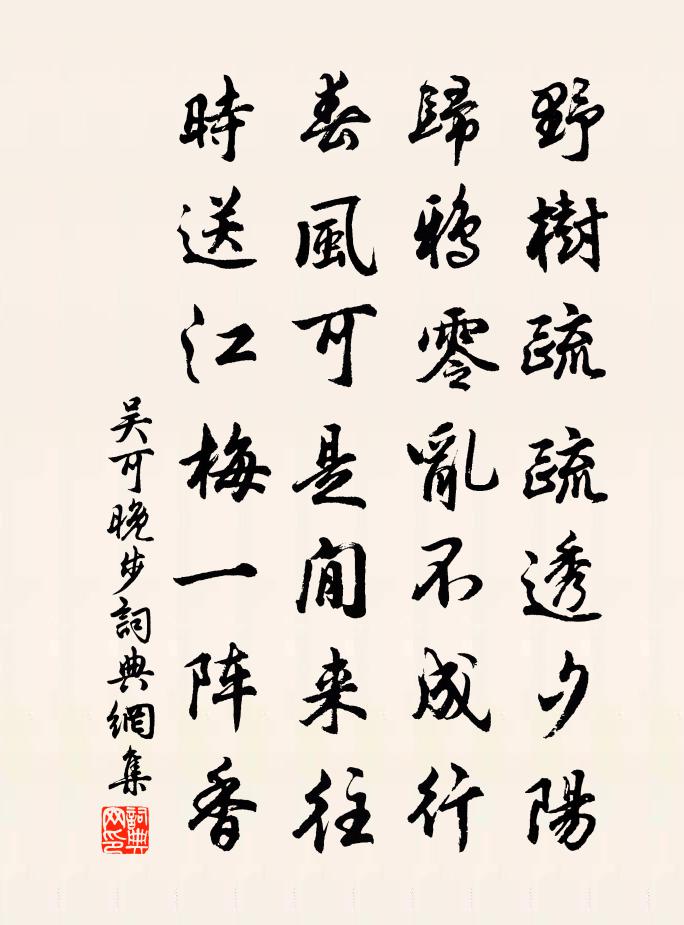 野樹疏疏透夕陽
歸鴉零亂不成行
春風可是閒来往
時送江梅一阵香
吴可晚步詞典網集
詞典
网印